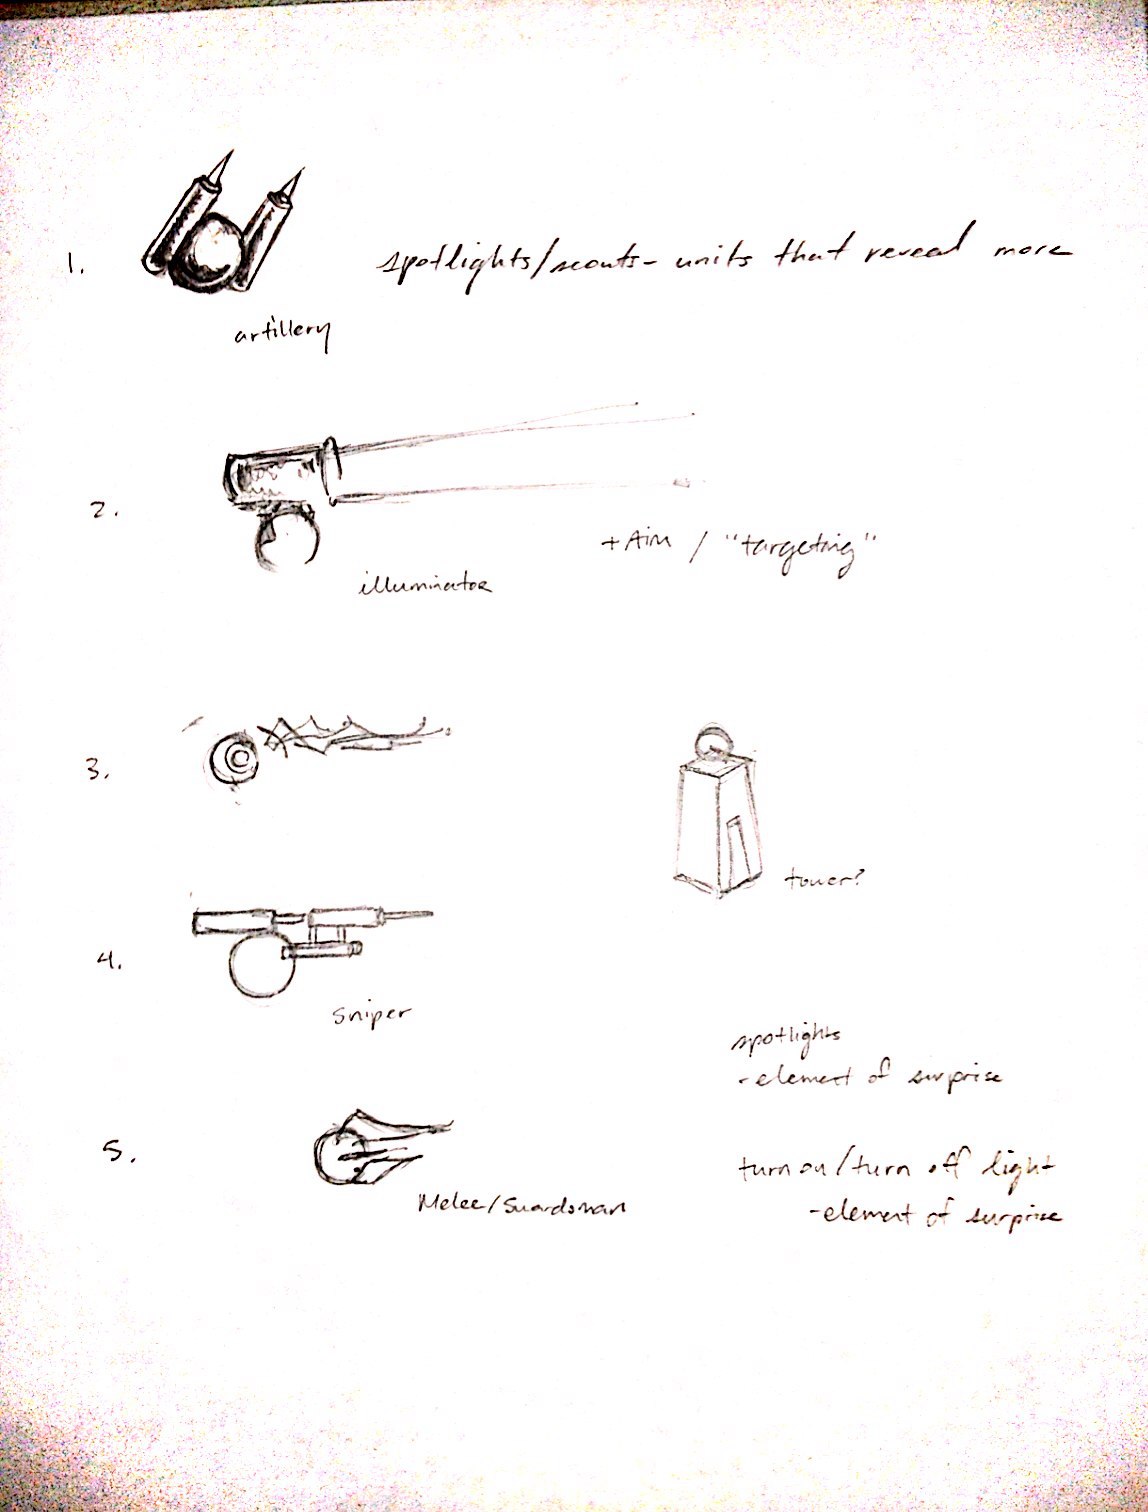 1.
spotlights/scouts- units that reveal more
artillery
2.
+Aim / "targeting"
illuminator
3.
tower?
4.
sniper
spotlights
-element of surprise
5.
turn on/turn off light
Melee/Guardsman
-element of surprise